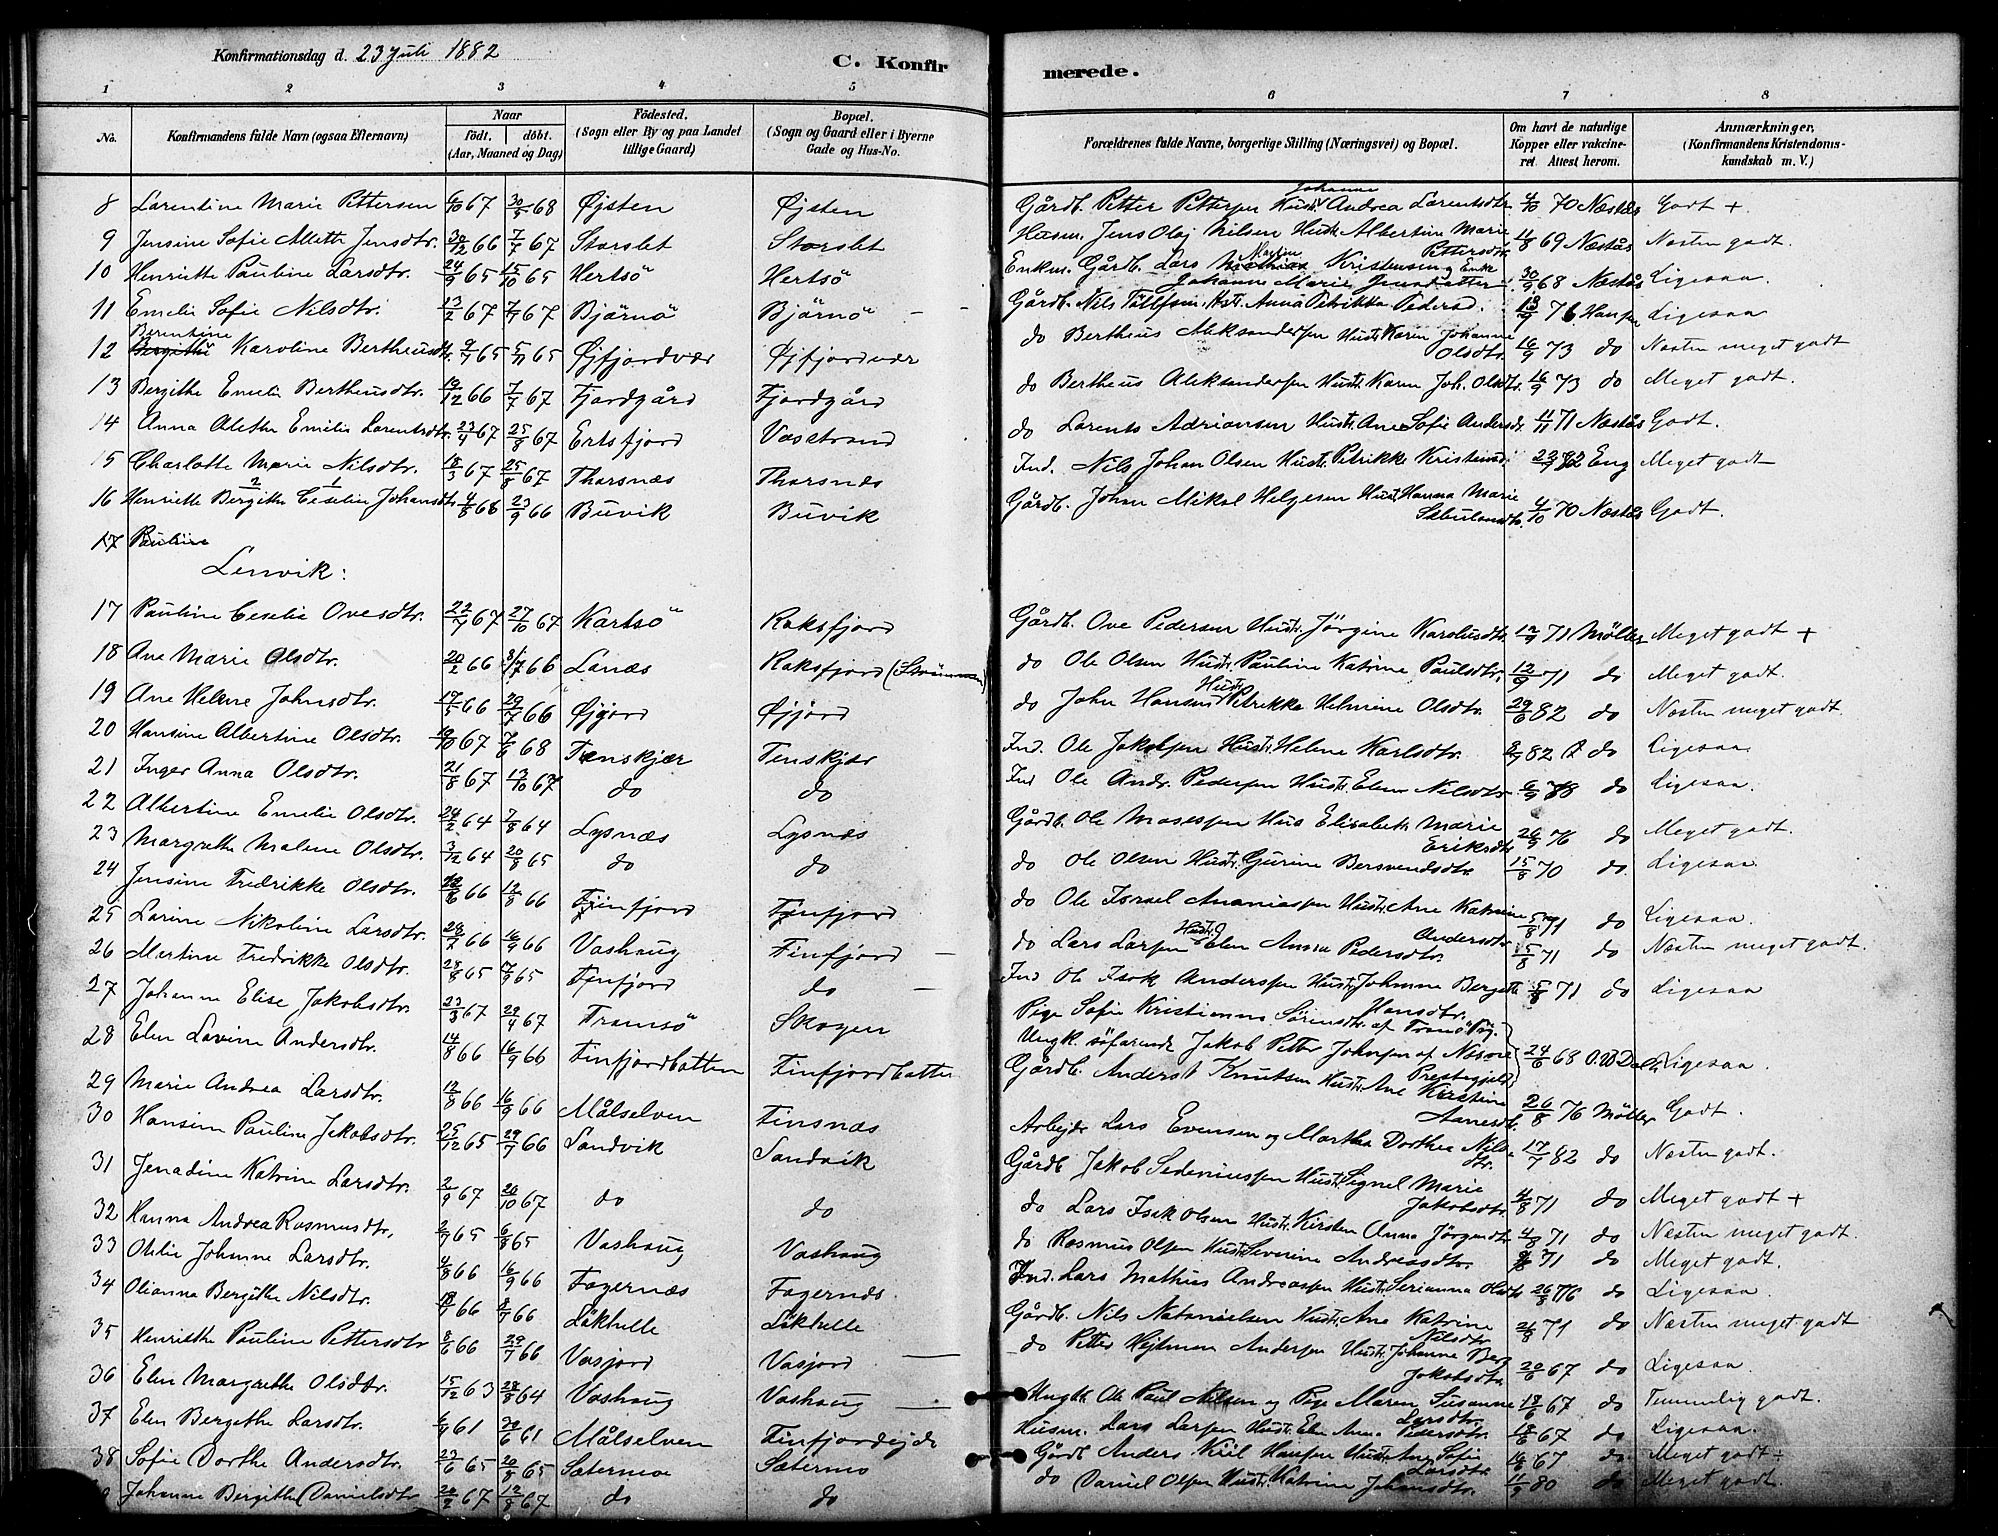 Konfirmationsdag d. 23 Juli 1882
C. Konfirmerede.
1 2 3 4 5 6 7 8
No. Konfirmandens fulde Navn (ogsaa Efternavn) Naar födt. döbt. (Aar, Maaned og Dag) Födested. (Sogn eller By og paa Landet tillige Gaard) Bopæl. (Sogn og Gaard eller i Byerne Gade og Hus-No. Forældrenes fulde Navne, borgerlige Stilling (Næringsvei) og Bopæl. Om havt de naturlige Kopper eller vakcineret. Attest herom. Anmærkninger, (Konfirmandens Kristendomskundskab m. V.)
8 Larentine Marie Pettersen 6/10 67 30/5 68 Øjsten Øjsten Gårdb. Petter Pettersen Hustr. Johanne Andrea Larentsdtr. 4/10 70 Næstås Godt +
9 Jensine Sofie Alleth Jensdtr. 30/12 66 7/7 67 Storslet Storslet Husm. Jens Olaj Nilsen Hustr. Albertine Marie Pettersdtr. 4/8 69 Næstås Næsten godt.
10 Henriette Pauline Larsdtr. 24/9 65 15/10 65 Hertsö Hertsö Enkm. Gårdb. Lars Kristensen og Enke Johanne Marie 30/9 68 Næstås Ligesaa
11 Emelie Sofie Nilsdtr. 13/2 67 7/7 67 Björnö Björnö Gårdb. Nils Hstr. Anna Petrikke Pedersd. 18/9 76 Hansen Ligesaa
12 Berentine Karoline Bertheusdtr. 9/7 65 5/11 65 Øjfjordvær Øjfjordvær do Bertheus Aleksandersen Hustr. Karen Johanne Olsdtr. 16/9 73 do Næsten meget godt
13 Bergithe Emelie Bertheusdtr. 19/12 66 7/7 67 Fjordgård Fjordgård do Bertheus Aleksandersen Hustr. Karen Joh. Olsdtr. 16/9 73 do Meget godt.
14 Anna Alethe Emilie Larentsdtr. 23/4 67 25/8 67 Ertsfjord Vasstrand do Larents Adriansen Hustr. Ane Sofie Andersdr. 4/11 71 Næstås Godt.
15 Charlotte Marie Nilsdtr. 18/3 67 25/8 67 Thorsnæs Thorsnæs Ind. Nils Johan Olsen Hustr. Petrikke 82 Eng Meget godt
16 Henriette Bergithe Ceselie Johansdtr. 4/8 66 23/9 66 Buvik Buvik Gårdb. Johan Mikal Helgesen Hust. Hanna Marie Sebulonsdtr. 4/10 70 Næstås Godt.
17 Pauline
Lenvik:
17 Pauline Ceselie Ovesdtr. 22/7 67 27/10 67 Kartsö Roksfjord Gårdb. Ove Pedersen Hustr. Jörgine Karolusdtr. 12/9 71 Møller Meget godt +
18 Ane Marie Olsdtr. 20/2 66 8/7 66 Lanæs Roksfjord do Ole Olsen Hustr. Pauline Katrine Paulsdtr. 12/9 71 do Meget godt.
19 Ane Helene Johnsdtr. 17/5 66 29/7 66 Øjjord Øjjord do John Hansen Hustr. Petrikke Helmine Olsdtr. 29/6 82 do Næsten meget godt.
20 Hansine Albertine Olsdtr. 19/10 67 7/6 68 Tenskjær Tenskjær Ind. Ole Jakobsen Hustr. Helene Karlsdtr. 82 do Ligesaa
21 Inger Anna Olsdtr. 21/8 67 13/10 67 do do Ind Ole Andr. Pedersen Hustr. Elen Nilsdtr. do Ligesaa
22 Albertine Emelie Olsdtr. 24/2 64 7/8 64 Lysnæs Lysnæs Gårdb. Ole Mosessen Hus Elisabeth Marie Eriksdtr. 26/9 76 do Meget godt.
23 Margrethe Malene Olsdtr. 3/12 64 20/8 65 do do do Ole Olsen Hustr. Gurine Bersvendsdtr. 15/8 70 do Ligesaa
24 Jensine Fredrikke Olsdtr. 66 12/8 66 Finfjord Finfjord do Ole Israel Ananiassen Hustr. Ane Katrine Andersdtr. 5/8 71 do Ligesaa.
25 Larine Nikoline Larsdtr. 28/7 66 16/9 66 Vashaug Finfjord do Lars Larsen Hustr. Elen Anna Pedersdtr. 15/8 71 do Næsten meget godt.
26 Martine Fredrikke Olsdtr. 28/8 65 17/9 65 Finfjord do Ind Ole Isak Anderssen Hustr. Johanne Bergethe Hansdtr. 5/8 71 do Ligesaa
27 Johanne Elise Jakobsdtr. 23/3 67 29/4 67 Tromsö Skogen Pige Sofie Kristianna Sörensdtr. af Tromö Ungk. söfarende Jakob Petter Johnsen af Præstegjeld 24/6 68 Ligesaa.
28 Elen Lovine Andersdtr. 14/8 66 16/9 66 Finfjordbotten Finfjordbotten Gårdb. Anders Knutsen Hustr. Ane Kirstine 26/8 76 Møller Godt.
29 Marie Andrea Larsdtr. 12/8 66 16/9 66 Målselven Finsnæs Arbejdr Lars Evensen og Martha Dorthea Nilsdtr. 17/7 82 do Næsten godt.
30 Hansine Pauline Jakobsdtr. 25/12 65 29/7 66 Sandvik Sandvik Gårdb Jakob Hustr. Signel Marie Jakobsdtr. 4/8 71 do Meget godt +
31 Jenadine Katrine Larsdtr. 2/9 67 20/10 67 do do do Lars Isak Olsen Hustr. Kirsten Anna Jörgensdtr. 4/8 71 do Næsten meget godt.
32 Hanna Andrea Rasmusdtr. 65 6/8 65 Vashaug Vashaug do Rasmus Olsen Hustr. Severine Andreasdtr. 71 do Meget godt.
33 Otelie Johanne Larsdtr. 4/8 66 16/9 66 Fagernæs Fagernæs. Ind. Lars Mathias Andreassen Hustr. Serianna Olsdtr. 26/8 76 do Ligesaa.
34 Olianna Bergithe Nilsdtr. 66 8/7 66 Løkhelle Løkhelle Gårdb. Nils Natanielsen Hustr. Ane Katrine Nilsdtr. 71 do Næsten meget godt
35 Henriette Pauline Pettersdtr. 8/6 66 29/7 66 Vasjord Vasjord do Petter Hejtman Andersen Hustr. Johanne Berg Jakobsdtr. 20/6 67 do Ligesaa.
36 Elen Margrethe Olsdtr. 15/12 63 28/8 64 Vashaug Vashaug Ungk. Ole Paul Nilsen og Pige Maren Susanne Larsdtr. 18/6 67 do Temmelig godt.
37 Elen Bergethe Larsdtr. 61 30/6 61 Målselven Finfjordejde Husm. Lars Larsen Hustr. Elen Anna Pedersdtr. 18/6 67 do Ligesaa.
38 Sofie Dorthe Andersdtr. 23/6 65 20/8 65 Sætermo Sætermo Gårdb Anders Kiil Hansen Hustr. Ane Sofie Larsdtr. 67 do Meget godt +
Johanne Bergithe Danielsdtr 20/2 67 12/8 67 do do do Daniel Olsen Hustr. Katrine Johansdtr. 11/9 80 do Meget godt.